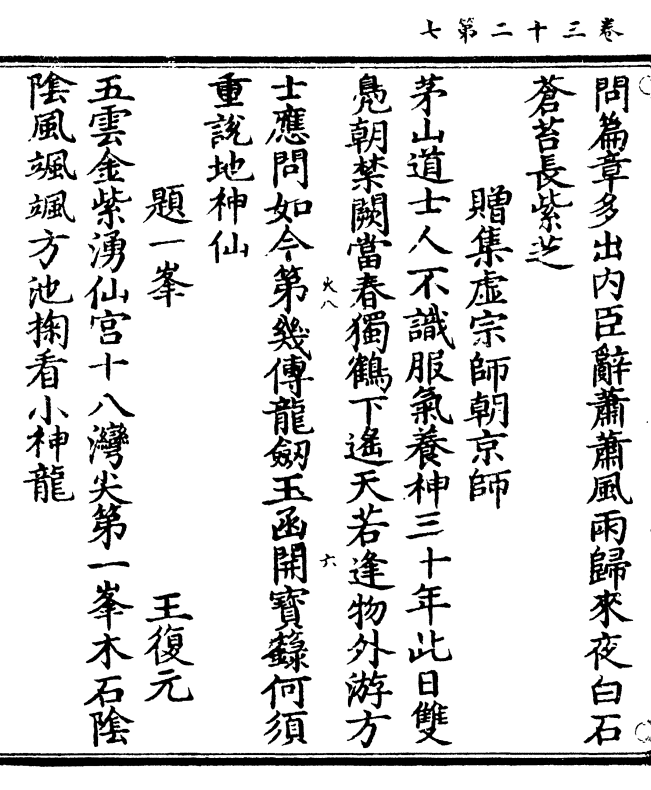 卷三十二第七
問篇章多出内臣辭蕭蕭風雨歸來夜白石
蒼苔長紫芝
贈集虚宗師朝京師
茅山道士人不識服氣養神三十年此日雙
鳬朝禁闕當春獨鶴下遙天若逢物外游方
火八
六
士應問如今第幾傳龍劒玉函開寶籙何須
重說地神仙
題一峯
王復元
五雲金紫湧仙宫十八灣尖第一峯木石陰
陰風颯颯方池掬看小神龍